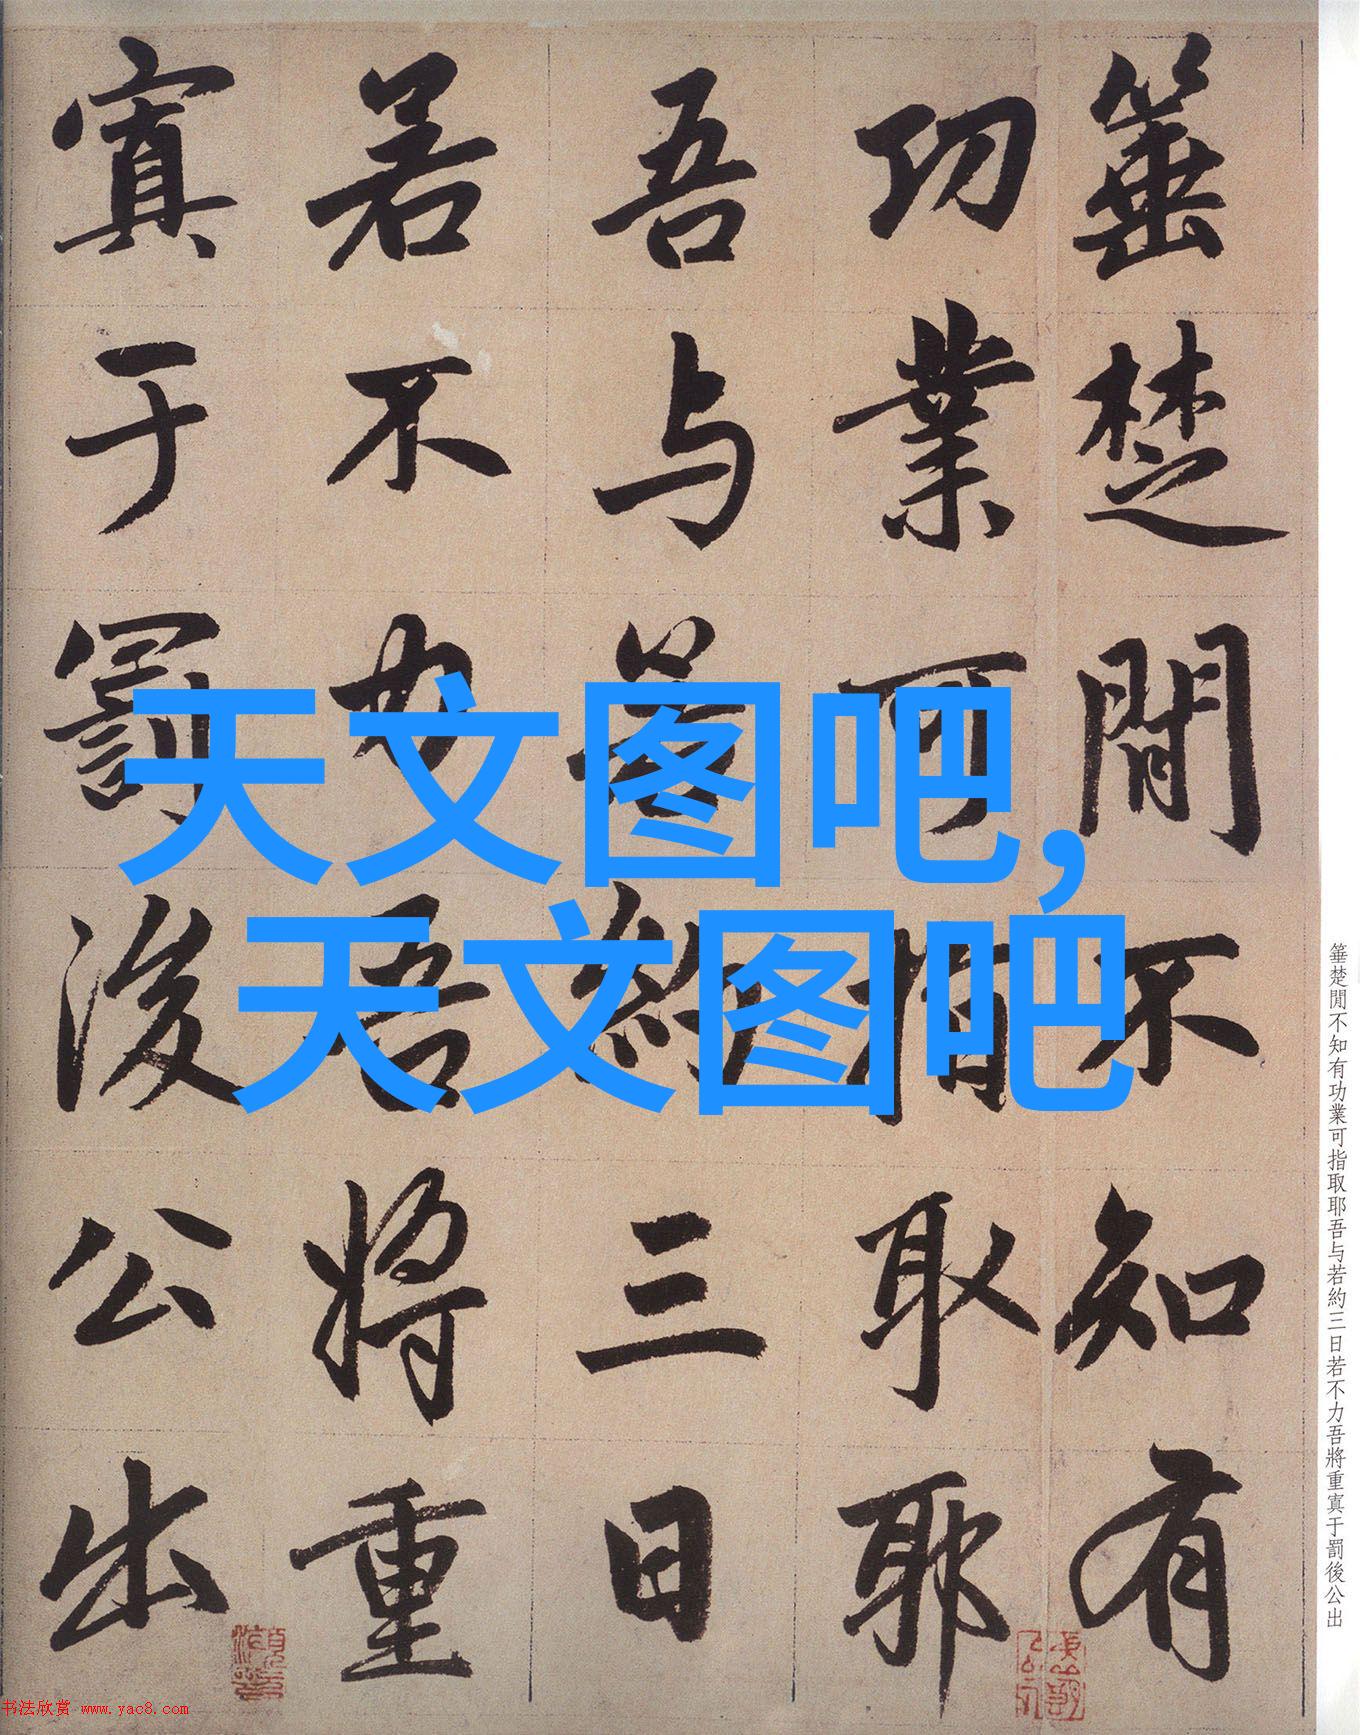 箠楚間不知有
功業可指取耶
吾与若約三日
若不力吾將重
寘于罰後公出
天文图吧,
天文图吧
箠楚間不知有功業可指取耶吾与若約三日若不力吾將重寘于罰後公出
书法欣赏 www.yac8.com